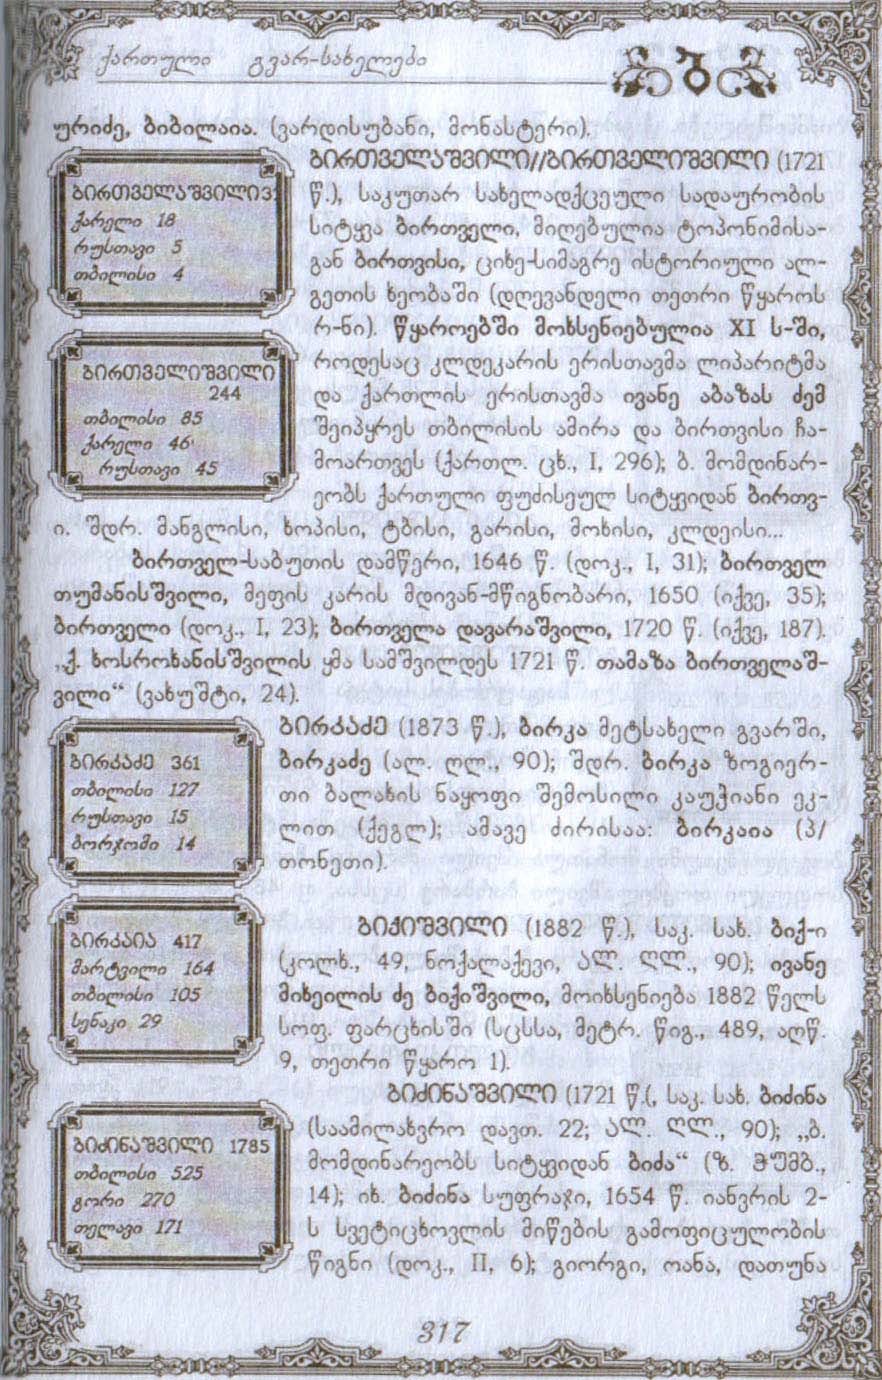 ქართული გვარ-სახელები
ურიძე, ბიბილაია. (ვარდისუბანი, მონასტერი).
ბირთველაშვილი
ქარელი 18
რუსთავი 5
თბილისი 4
ბირთველიშვილი
244
თბილისი 85
ქარელი 46
რუსთავი 45
ბირთველაშვილი//ბირთველიშვილი (1721
წ.), საკუთარ სახელადქცეული სადაურობის
სიტყვა ბირთველი, მიღებულია ტოპონიმისა-
გან ბირთვისი, ციხე-სიმაგრე ისტორიული ალ-
გეთის ხეობაში (დღევანდელი თეთრი წყაროს
რ-ნი). წყაროებში მოხსენიებულია XI ს-ში,
როდესაც კლდეკარის ერისთავმა ლიპარიტმა
და ქართლის ერისთავმა ივანე აბაზას ძემ
შეიპყრეს თბილისის ამირა და ბირთვისი ჩა-
მოართვეს (ქართლ. ცხ., I, 296); ბ. მომდინარ-
ეობს ქართული ფუძისეულ სიტყვიდან ბირთვ-
ი. შდრ. მანგლისი, ხოპისი, ტბისი, გარისი, მოხისი, კლდეისი...
ბირთველ-საბუთის დამწერი, 1646 წ. (დოკ., I, 31); ბირთველ
თუმანისშვილი, მეფის კარის მდივან-მწიგნობარი, 1650 (იქვე, 35);
ბირთველი (დოკ., I, 23); ბირთველა დავარაშვილი, 1720 წ. (იქვე, 187).
„ქ. ხოსროხანისშვილის ყმა სამშვილდეს 1721 წ. თამაზა ბირთველაშ-
ვილი“ (ვახუშტი, 24).
ბირკაძე 361
თბილისი 127
რუსთავი 15
ბორჯომი 14
ბირკაძე (1873 წ.), ბირკა მეტსახელი გვარში,
ბირკაძე (ალ. ღლ., 90); შდრ. ბირკა ზოგიერ-
თი ბალახის ნაყოფი შემოსილი კაუჭიანი ეკ-
ლით (ქეგლ); ამავე ძირისაა: ბირკაია (პ/
თონეთი).
ბირკაია 417
მარტვილი 164
თბილისი 105
სენაკი 29
ბიქიშვილი (1882 წ.), საკ. სახ. ბიქ-ი
(კოლხ., 49, ნოქალაქევი, ალ. ღლ., 90); ივანე
მიხეილის ძე ბიქიშვილი, მოიხსენიება 1882 წელს
სოფ. ფარცხისში (სცსსა, მეტრ. წიგ., 489, აღწ.
9, თეთრი წყარო 1).
ბიძინაშვილი 1785
თბილისი 525
გორი 270
თელავი 171
ბიძინაშვილი (1721 წ.(, საკ. სახ. ბიძინა
(საამილახვრო დავთ. 22; ალ. ღლ., 90); „ბ.
მომდინარეობს სიტყვიდან ბიძა“ (ზ. ჭუმბ.,
14); იხ. ბიძინა სუფრაჯი, 1654 წ. იანვრის 2-
ს სვეტიცხოვლის მიწების გამოფიცულობის
წიგნი (დოკ., II, 6); გიორგი, ოანა, დათუნა
317